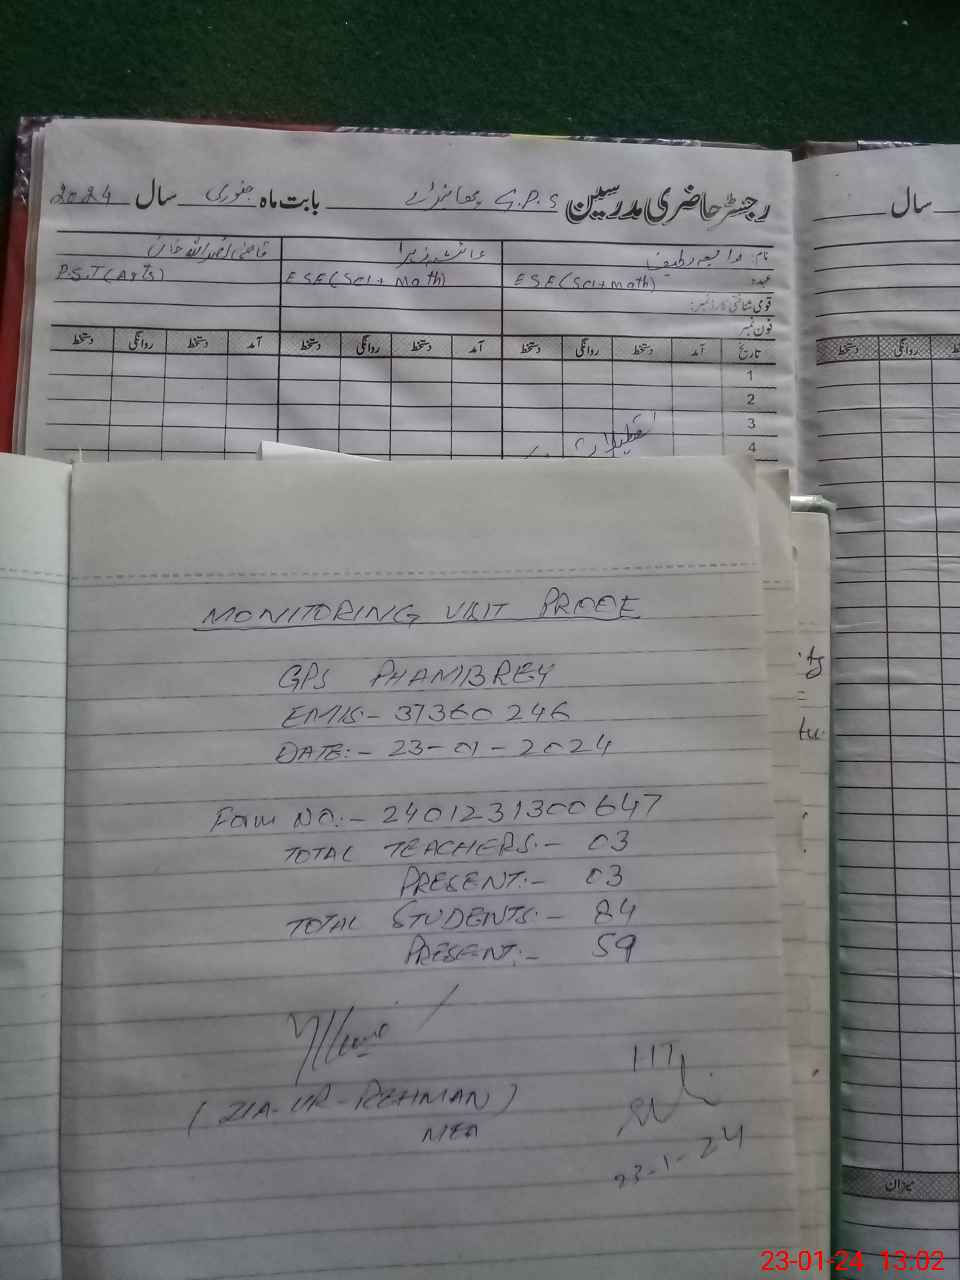 رجسٹر حاضری مدرسین G.P.S پھامبڑے بابت ماہ جنوری سال 2024
نام:
عائشہ زہرا
عہدہ ESE (Sci + Math) ESE (Sci + Math) P.S.T (Arts)
قومی شناختی کارڈ نمبر:
فون نمبر
تاریخ آمد دستخط روانگی دستخط آمد دستخط روانگی دستخط آمد دستخط روانگی دستخط
1
2
3
4
سال
روانگی دستخط
MONITORING VISIT PROOF
GPS PHAMBREY
EMIS:- 37360246
DATE:- 23-01-2024
Form NO:- 2401231300647
TOTAL TEACHERS:- 03
PRESENT:- 03
TOTAL STUDENTS:- 84
PRESENT:- 59
(ZIA-UR-REHMAN)
MEA
HT
23-1-24
میزان
23-01-24 13:02